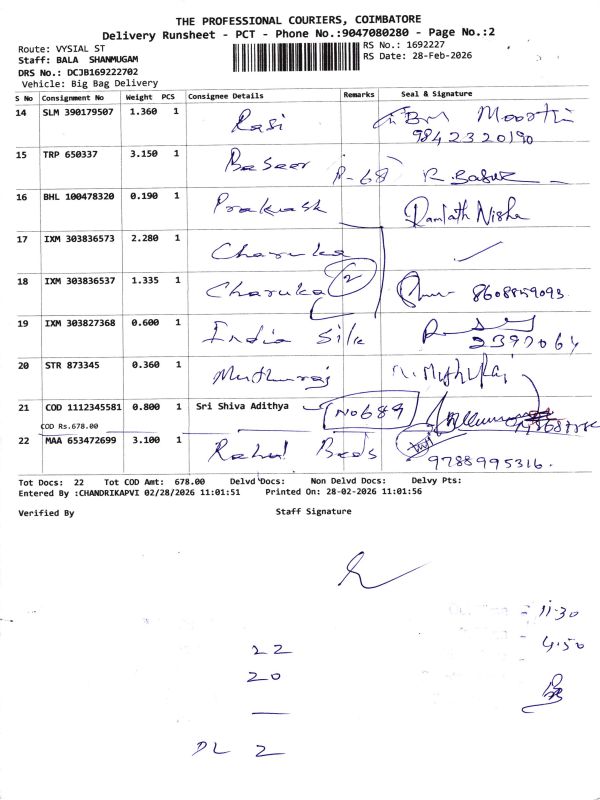 THE PROFESSIONAL COURIERS, COIMBATORE
Delivery Runsheet - PCT - Phone No.:9047080280 - Page No.:2
Route: VYSIAL ST
RS No.: 1692227
Staff: BALA SHANMUGAM
RS Date: 28-Feb-2026
DRS No.: DCJB169222702
Vehicle: Big Bag Delivery
S No Consignment No Weight PCS Consignee Details Remarks Seal & Signature
14 SLM 390179507 1.360 1 Rasi
9842320190
15 TRP 650337 3.150 1 Baseer P-68
16 BHL 100478320 0.190 1 Prakash Ramlath Nisha
17 IXM 303836573 2.280 1 Charuka
18 IXM 303836537 1.335 1 Charuka 2 8608859093
19 IXM 303827368 0.600 1 India Silk
2397064
20 STR 873345 0.360 1 Muthuraj
21 COD 1112345581 0.800 1 Sri Shiva Adithya No 689
COD Rs.678.00
22 MAA 653472699 3.100 1 Rahul Beds
9788995316
Tot Docs: 22 Tot COD Amt: 678.00 Delvd Docs: Non Delvd Docs: Delvy Pts:
Entered By :CHANDRIKAPVI 02/28/2026 11:01:51 Printed On: 28-02-2026 11:01:56
Verified By Staff Signature
11.30
4.50
22
20
DL 2